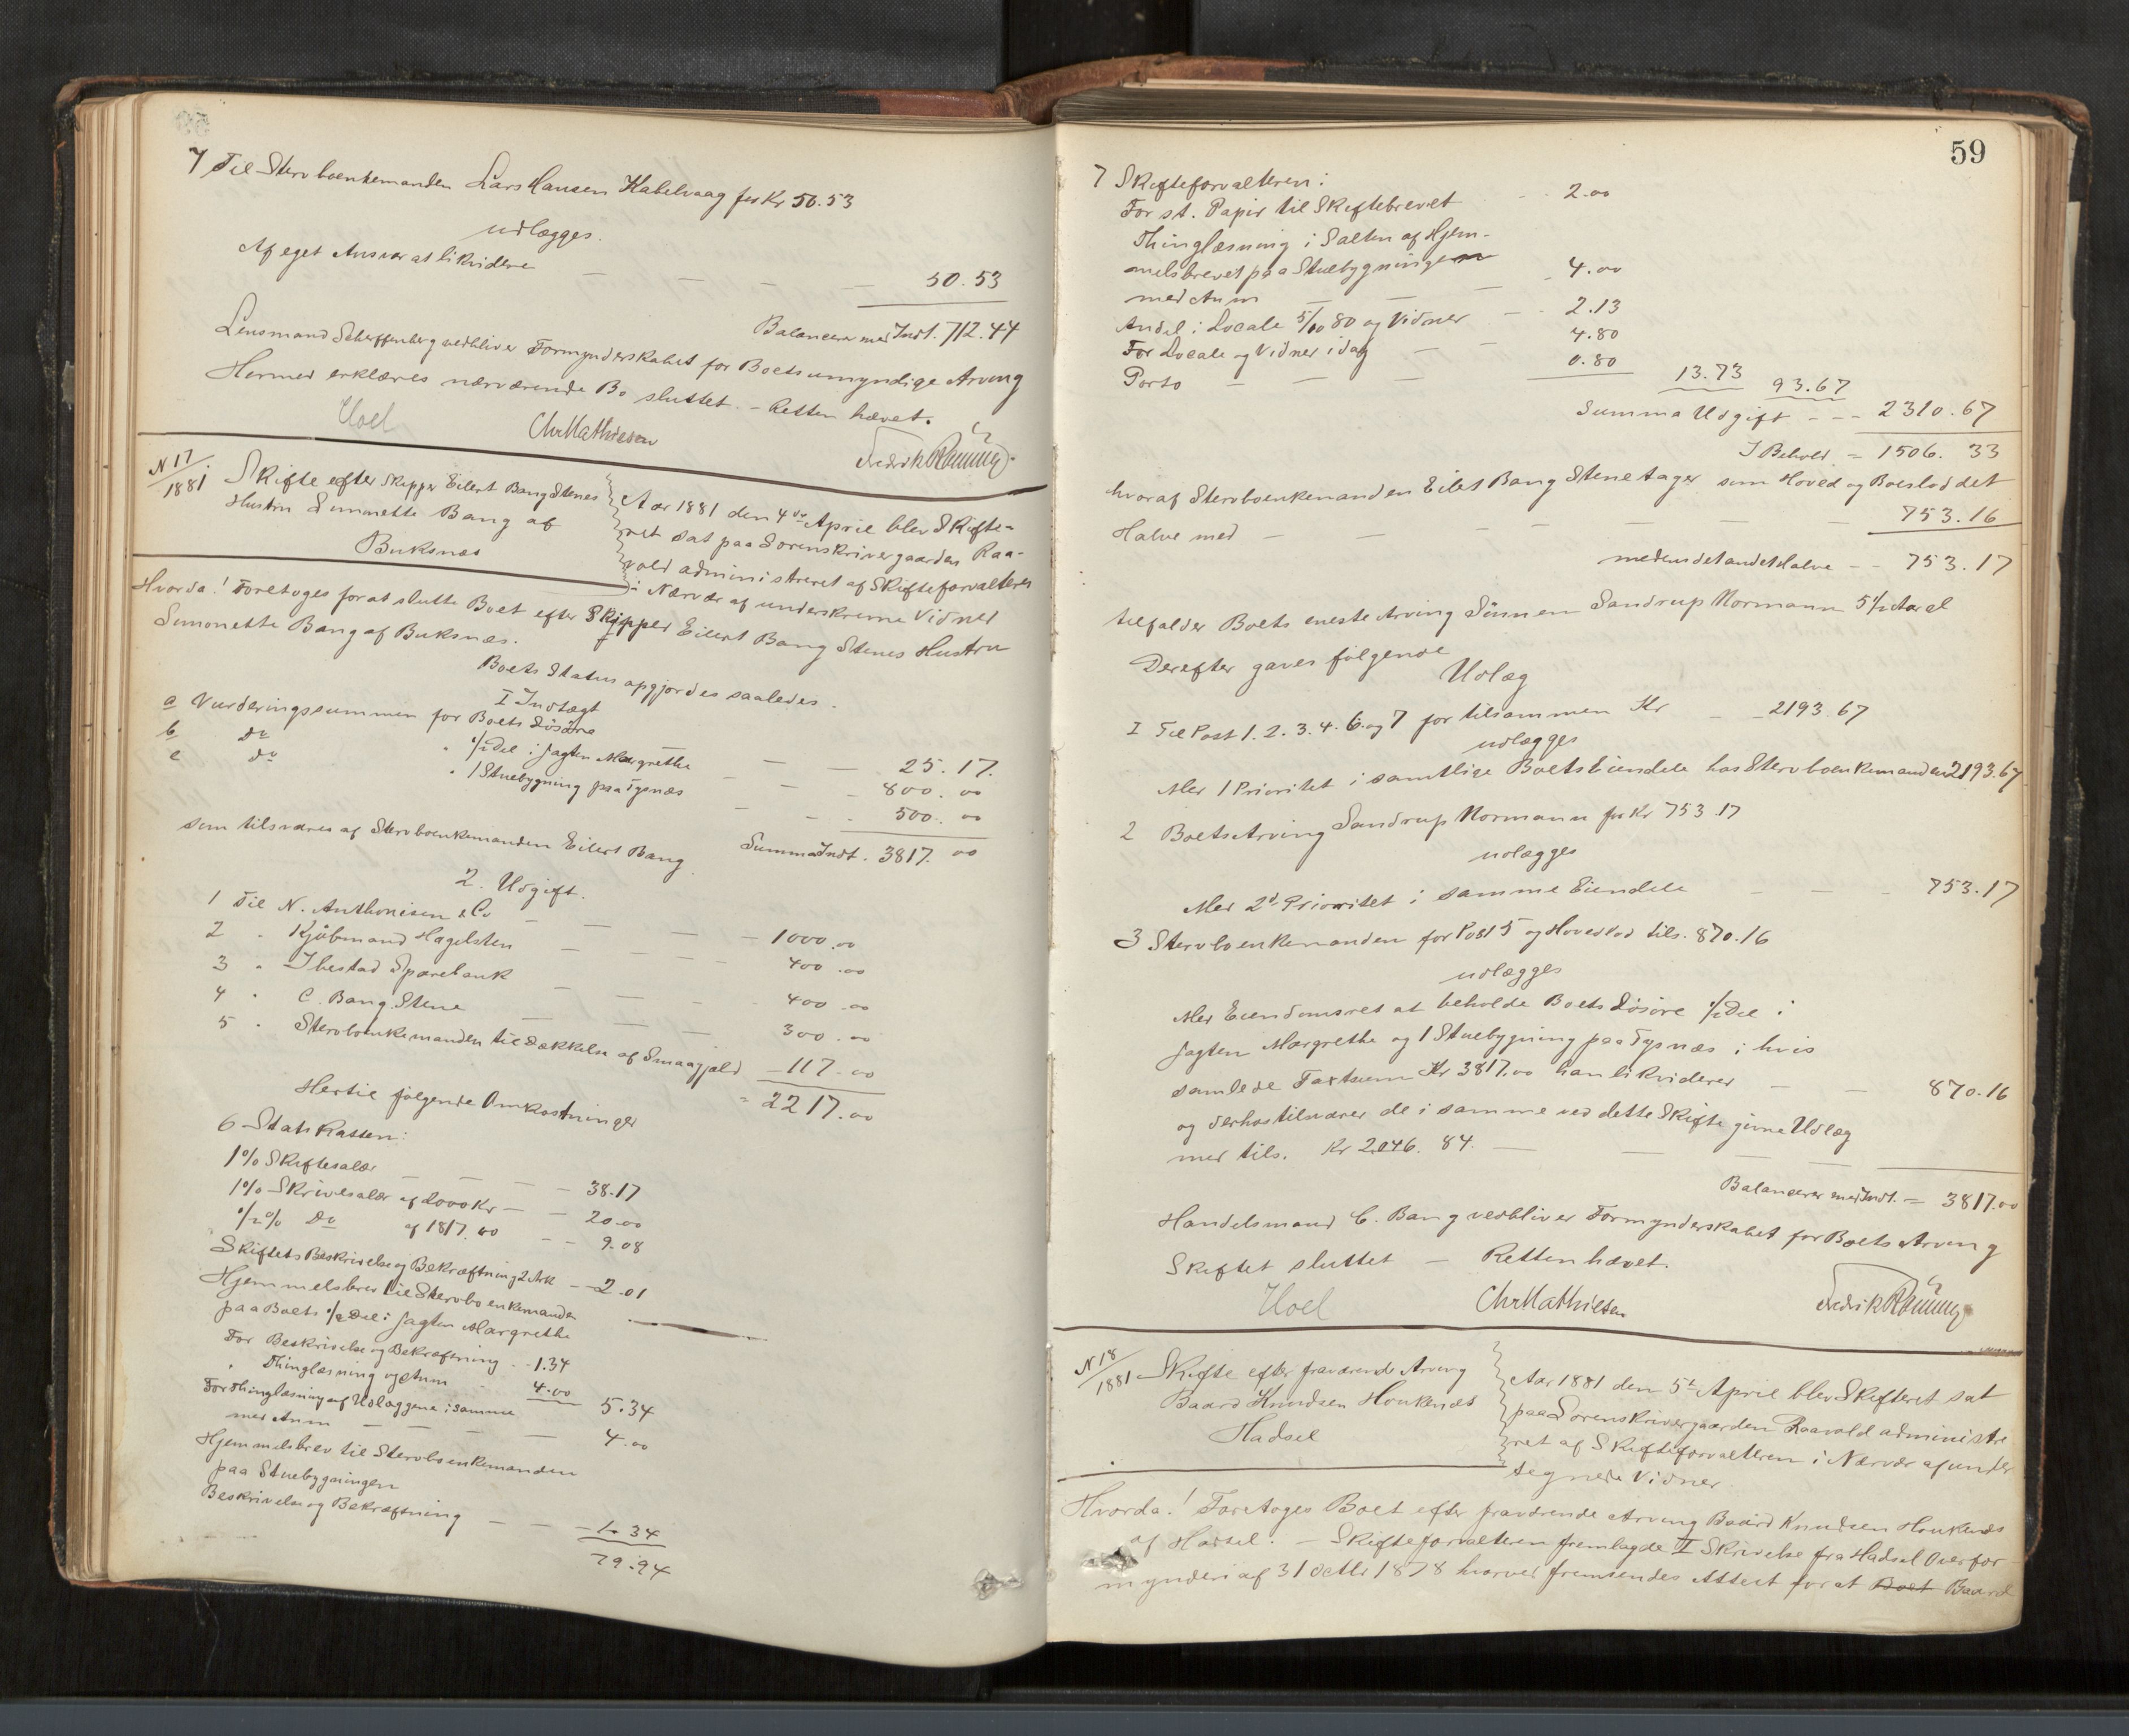 7 Til Stervboenkemanden Lars Hansen Kabelvaag for Kr 50.53
udlægges.
Af eget Ansvar at likvidere — — — — 50.53
Balancerer med Indt. 712.44
Lensmand Scheffenberg vedbliver Formynderskabet for Boets umyndige Arving
Hermed erklæres nærværende Bo sluttet. – Retten hævet.
Hoel ChrMathiesen Fredrik
N 17/1881 Skifte efter Skipper Eilert Bang Stenes
Hustru Simonette Bang af
Buksnæs
Aar 1881 den 4de April blev Skifte-
ret sat paa Sorenskrivergaarden Raa-
vold administreret af Skifteforvalteren
i Nærvær af underskrevne Vidner
Hvorda! Foretoges for at slutte Boet efter Skipper Eilert Bang Stenes Hustru
Simonette Bang af Buksnæs.
Boets Status opgjordes saaledes.
I Indtægt
a Vurderingssummen for Boets Løsøre — — 25.17.
b Do " ½ Del i Jagten Margrethe — — 800.00
c do " 1 Stuebygning paa Tysnæs — — 500.00
Summa Indt. 3817.00
som tilsvares af Stervboenkemanden Eilert Bang
2. Udgift.
1 Til N. Anthonisen & Co — — — 1000.00
2 " Kjøbmand Hagelsten — — — 400.00
3 " Ibestad Sparebank — — — 400.00
4 " C. Bang Stene — — — 300.00
5 " Stervboenkemanden til Dækkelse af Smaagjæld — 117.00
= 2217.00
Hertil følgende Omkostninger
6 Statskassen:
1% Skiftesalær — — — 38.17
1% Skrivesalær af 2000 Kr — — 20.00
½% Do af 1817.00 — — 9.08
Skiftets Beskrivelse og Bekræftning 2 Ark — 2.01
Hjemmelsbrev til Stervboenkemanden
paa Boets ½ Del i Jagten Margrethe
For Beskrivelse og Bekræftning - - 1.34
" Thinglæsning og Anm - 4.00 5.34
For Thinglæsning af Udlæggene i samme
med Anm — — — 4.00
Hjemmelsbrev til Stervboenkemanden
paa Stuebygningen
Beskrivelse og Bekræftning — — — 1.34
79.94
59
7 Skifteforvalteren:
For st. Papir til Skiftebrevet - - 2.00
Thinglæsning i Salten af Hjem-
melsbrevet paa Stuebygningen
med Anm — — — 4.00
Andel i Locale 5/10 80 og Vidner - - 2.13
For Locale og Vidner idag — — 4.80
Porto — — — 0.80 13.73 93.67
Summa Udgift - - - 2310.67
I Behold = 1506.33
hvoraf Stervboenkemanden Eilet Bang Stene tager som Hoved og Boeslod det
Halve med — — — — — 753.16
medens det andet Halve - - 753.17
tilfalder Boets eneste Arving Sønnen Sandrup Normann 5½ Aar al
Derefter gaves følgende
Udlæg
I Til Post 1. 2. 3. 4. 6. og 7 for tilsammen Kr - - 2193.67
udlægges
Med 1 Prioritet i samtlige Boets Eiendele hos Stervboenkemanden 2193.67
2 Boets Arving Sandrup Normann for Kr 753.17
udlægges
Med 2d Prioritet i samme Eiendele — — - 753.17
3 Stervboenkemanden for Post 5 og Hovedlod tils. 870.16
udlægges
Med Eiendomsret at beholde Boets Løsøre ½ Del i
Jagten Margrethe og 1 Stuebygning paa Tysnæs i hvis
samlede Taxtsum Kr 3817.00 han likviderer — — 870.16
og derhos tilsvarer de i samme ved dette Skifte givne Udlæg
med tils. Kr 2946.84. — — — —
Balancerer med Indt. = 3817.00
Handelsmand C. Bang vedbliver Formynderskabet for Boets Arving
Skiftet sluttet — Retten hævet.
Hoel ChrMathiesen Fredrik
N 18/1881 Skifte efter fraværende Arving
Baard Knudsen Houkenæs
Hadsel
Aar 1881 den 5te April blev Skifteret sat
paa Sorenskrivergaarden Raavold administre
ret af Skifteforvalteren i Nærvær af under
tegnede Vidner
Hvorda! Foretoges Boet efter fraværende Arving Baard Knudsen Houkenæs
af Hadsel. – Skifteforvalteren fremlagde I Skrivelse fra Hadsel Overfor
mynderi af 31 Octbr 1878 hvorved fremsendes Attest for at Boet Baard